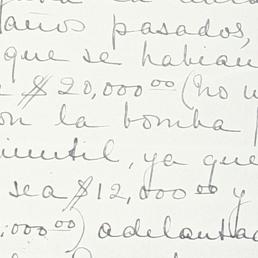 años pasados,
que se habían
$20,000.00 (no
la bomba
inutil, ya que
sea $12,000.00 y
,000.00) adelantad